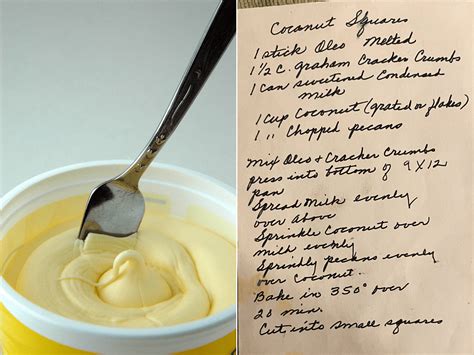 Coconut Squares
1 stick Oleo Melted
1 1/2 C. graham Cracker Crumbs
1 Can sweetened Condensed
Milk
1 Cup Coconut (grated or flakes)
1 " Chopped pecans
Mix Oleo & Cracker Crumbs
press into bottom of 9 X 12
pan
Spread Milk evenly
over above
Sprinkle Coconut over
milk evenly
Sprinkly pecans evenly
over Coconut.
Bake in 350° over
20 min.
Cut into small squares